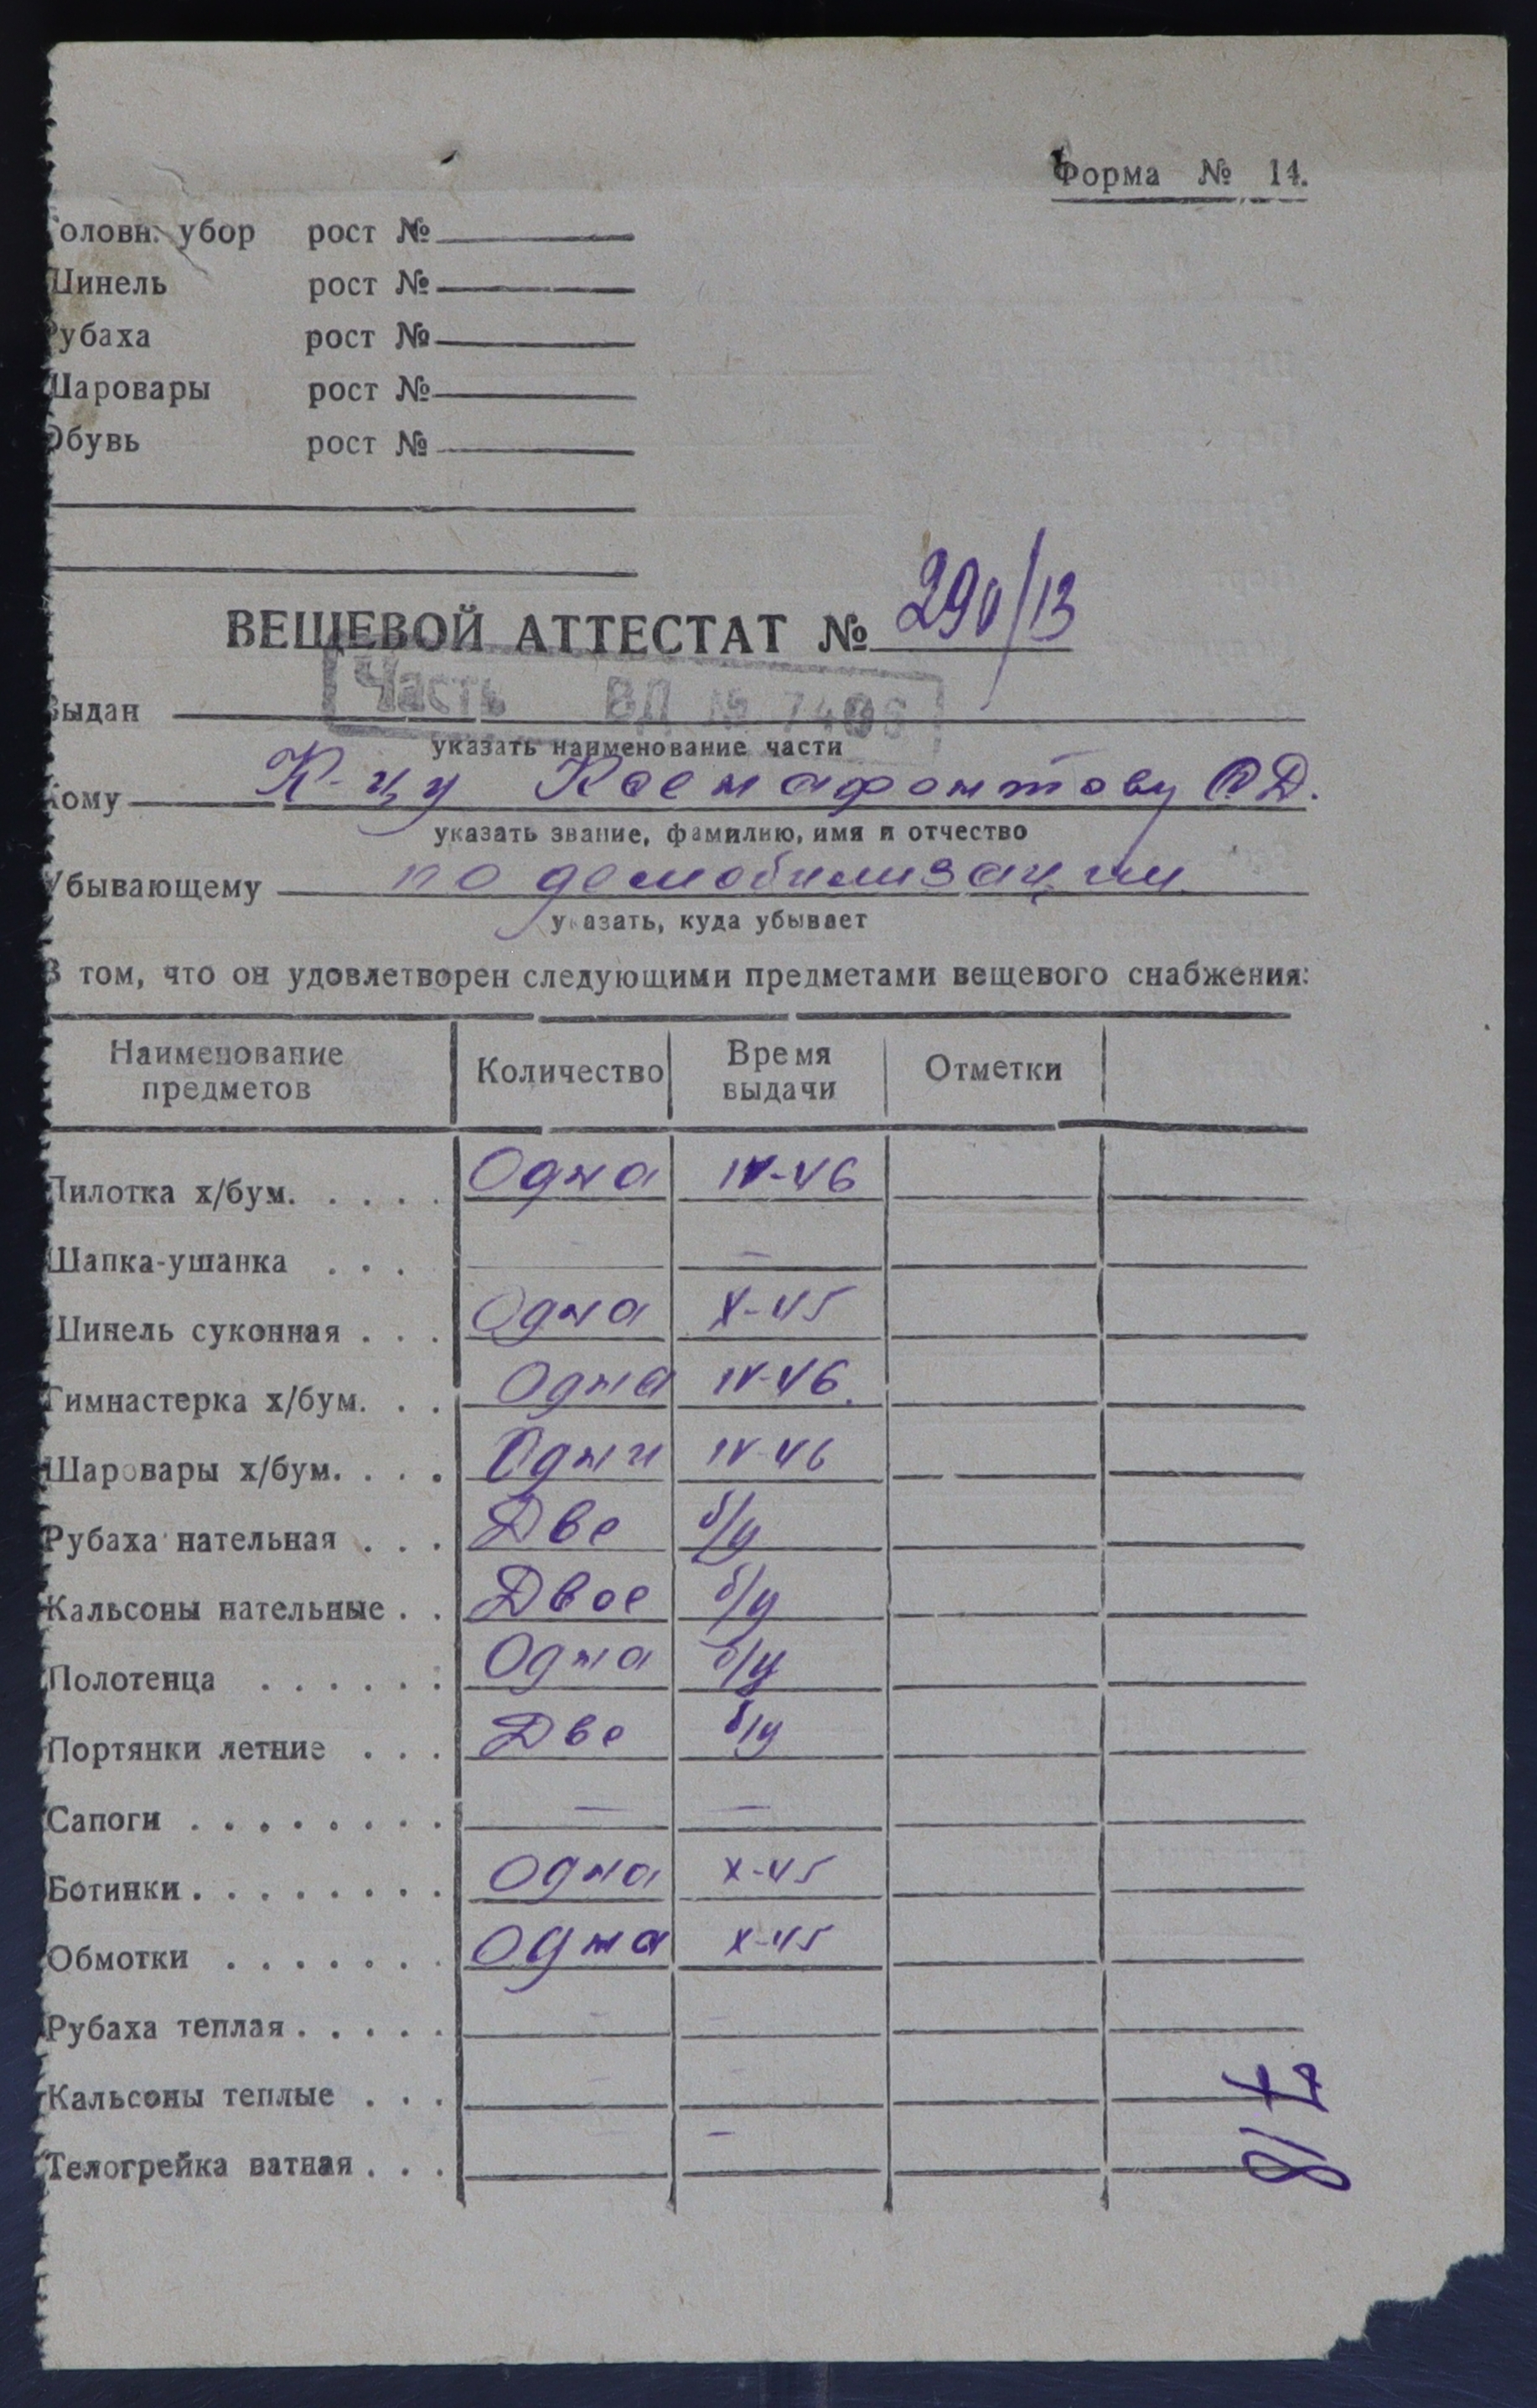 Форма № 14.
Головн. убор рост №
Шинель рост №
Рубаха рост №
Шаровары рост №
Обувь рост №
ВЕЩЕВОЙ АТТЕСТАТ № 290/13
Часть ВД № 7406
Выдан
указать наименование части
Кому К-цу Ксенафонтову Ф.Д.
указать звание, фамилию, имя и отчество
Убывающему по демобилизации
указать, куда убывает
В том, что он удовлетворен следующими предметами вещевого снабжения:
Наименование предметов Количество Время выдачи Отметки
Пилотка х/бум. Одна IV-46
Шапка-ушанка — —
Шинель суконная Одна X-45
Гимнастерка х/бум. Одна IV-46.
Шаровары х/бум. Одни IV-46
Рубаха нательная Две б/у
Кальсоны нательные Двое б/у
Полотенца Одна б/у
Портянки летние Две б/у
Сапоги — —
Ботинки Одна X-45
Обмотки Одна X-45
Рубаха теплая — —
Кальсоны теплые —
Телогрейка ватная —